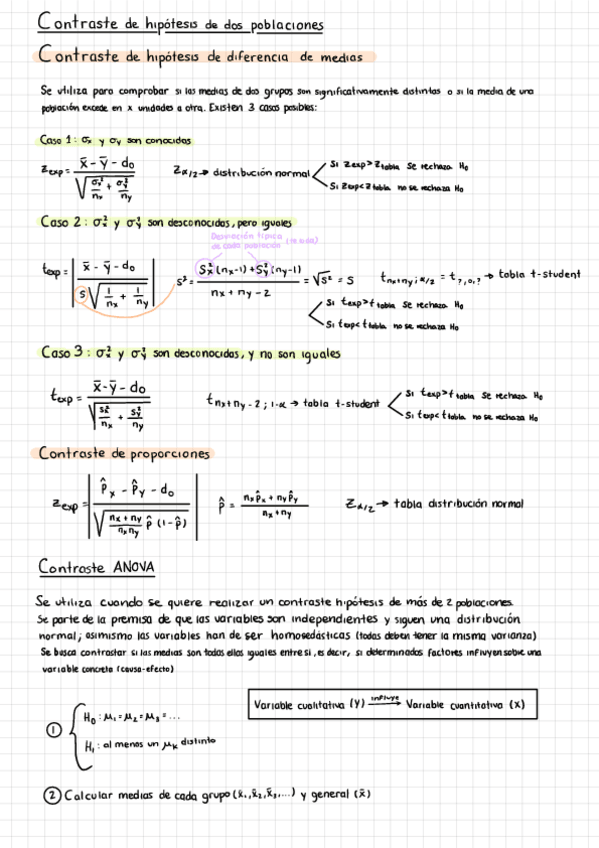 Contraste de hipótesis de dos poblaciones
Contraste de hipótesis de diferencia de medias
Se utiliza para comprobar si las medias de dos grupos son significativamente distintas o si la media de una
población excede en x unidades a otra. Existen 3 casos posibles:
Caso 1: σx y σy son conocidas
Zexp = (x̄ - ȳ - d₀) / √(σx²/nx + σy²/ny) Zα/2 → distribución normal
Si Zexp > Ztabla se rechaza H₀
Si Zexp < Ztabla no se rechaza H₀
Caso 2: σx² y σy² son desconocidas, pero iguales
Desviación típica de cada población (no dada)
texp = | (x̄ - ȳ - d₀) / (S √(1/nx + 1/ny)) | S² = (Sx²(nx-1) + Sy²(ny-1)) / (nx + ny - 2) = √S² = S
t nx+ny; α/2 = t ?,0,? → tabla t-student
Si texp > ttabla se rechaza H₀
Si texp < ttabla no se rechaza H₀
Caso 3: σx² y σy² son desconocidas, y no son iguales
texp = (x̄ - ȳ - d₀) / √(Sx²/nx + Sy²/ny) t nx+ny-2; 1-α → tabla t-student
Si texp > ttabla se rechaza H₀
Si texp < ttabla no se rechaza H₀
Contraste de proporciones
Zexp = | (p̂x - p̂y - d₀) / √((nx+ny)/(nx ny) p̂ (1-p̂)) | p̂ = (nx p̂x + ny p̂y) / (nx + ny) Zα/2 → tabla distribución normal
Contraste ANOVA
Se utiliza cuando se quiere realizar un contraste hipótesis de más de 2 poblaciones.
Se parte de la premisa de que las variables son independientes y siguen una distribución
normal; asimismo las variables han de ser homosedásticas (todas deben tener la misma varianza)
Se busca contrastar si las medias son todas ellas iguales entre si, es decir, si determinados factores influyen sobre una
variable concreta (causa-efecto)
Variable cualitativa (Y) influye → Variable cuantitativa (X)
① H₀: μ₁ = μ₂ = μ₃ = ...
H₁: al menos un μk distinto
② Calcular medias de cada grupo (x̄₁, x̄₂, x̄₃, ...) y general (x̄)